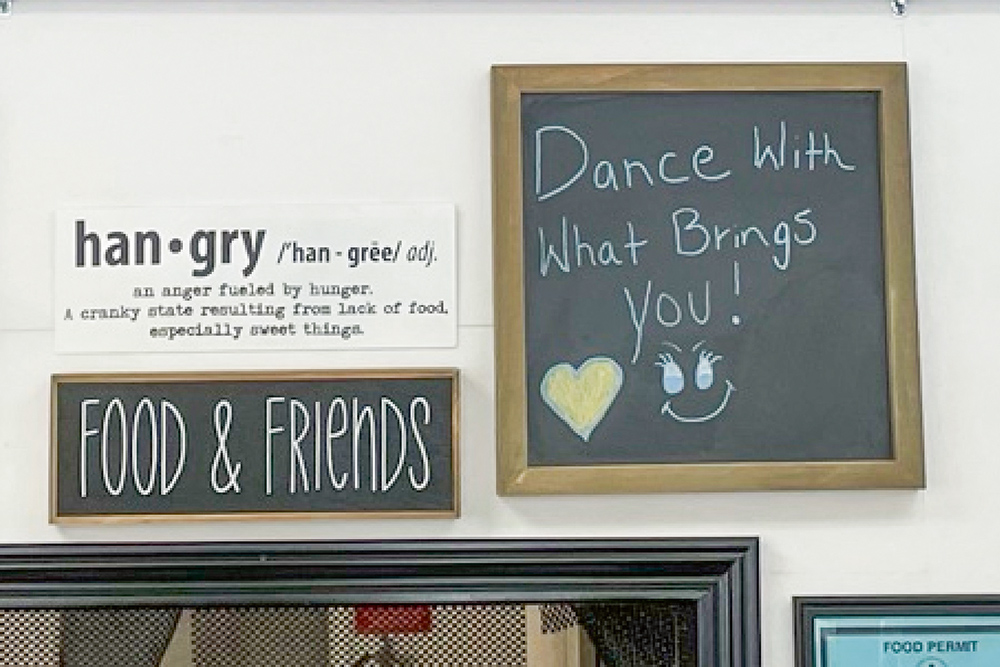 han•gry /'han - grēe/ adj.
an anger fueled by hunger.
A cranky state resulting from lack of food,
especially sweet things.
FOOD & FRIENDS
Dance With
What Brings
YOU!
FOOD PERMIT